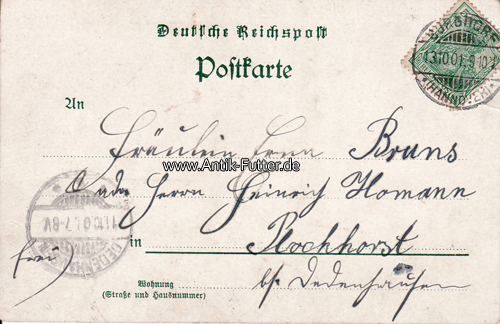 Deutsche Reichspost
Postkarte
An
Fräulein Erna Bruns
www.Antik-Futter.de
Adr. Herrn Heinrich Homann
in Plockhorst
frei
Wohnung
(Straße und Hausnummer)
b/ Dedenhausen
(HANNOVER)